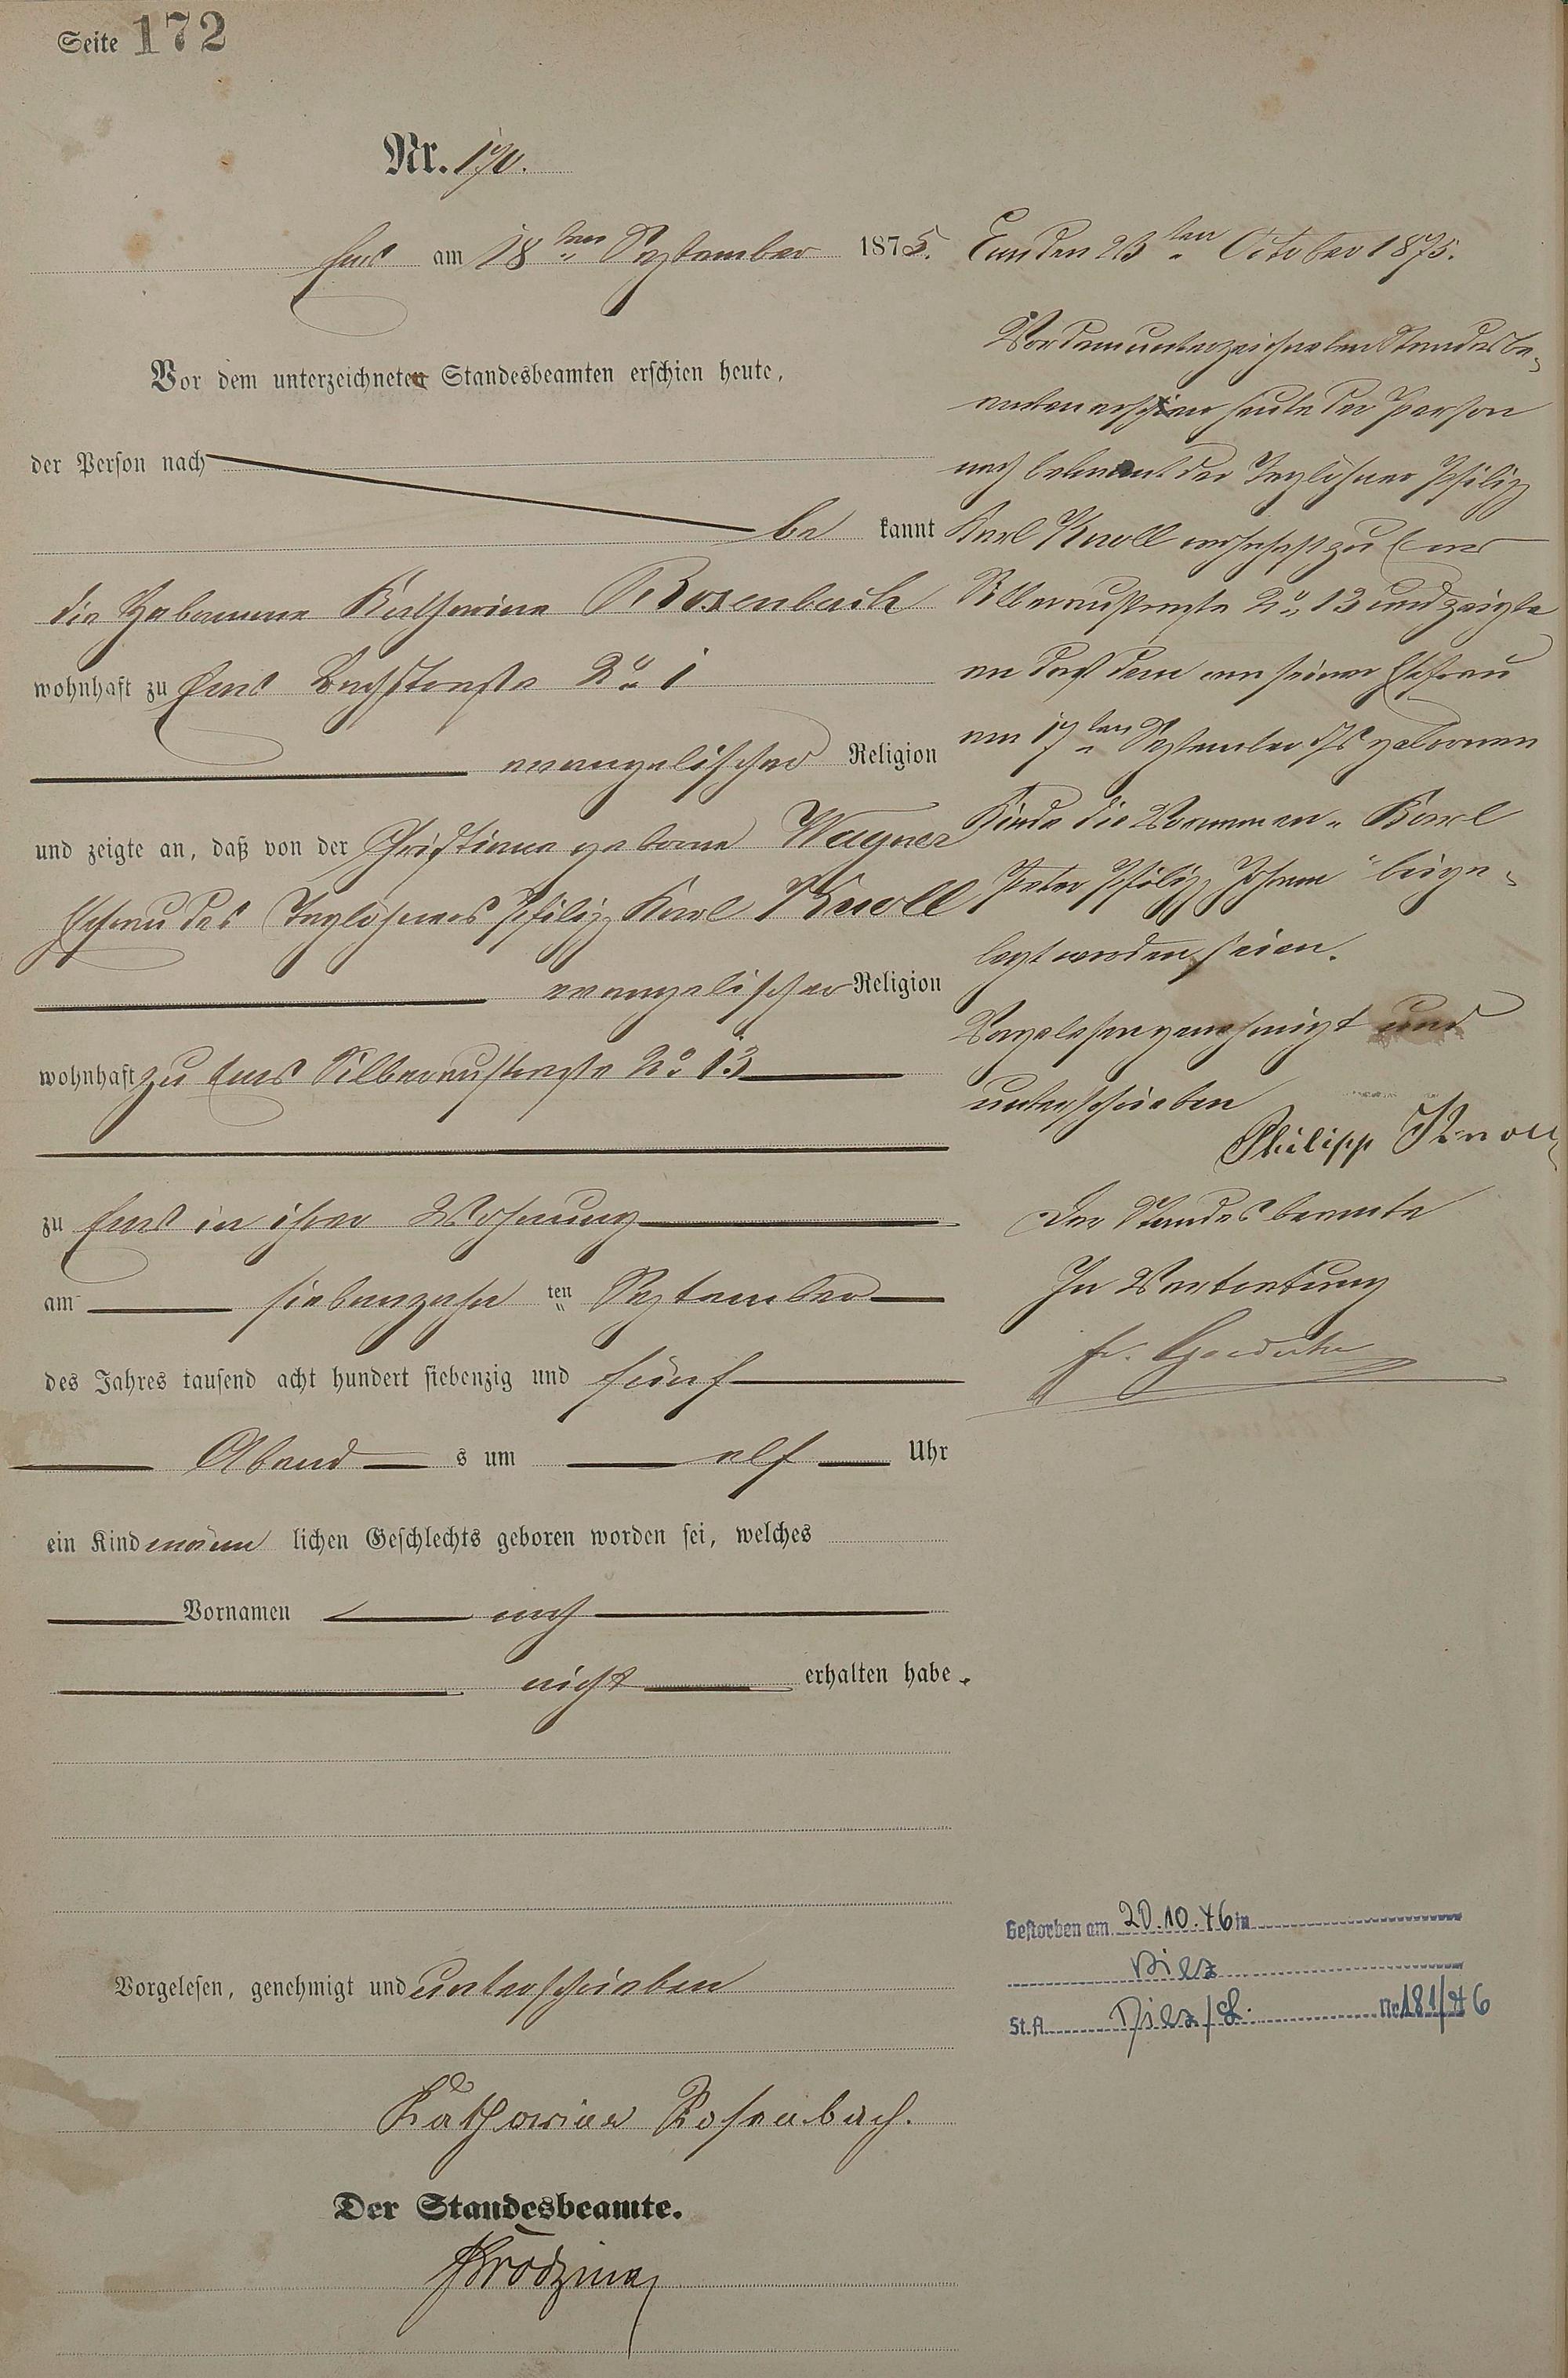 Seite 172
Nr. 170.
Ems am 18ten September 1875.
Vor dem unterzeichneten Standesbeamten erschien heute,
der Person nach
bekannt
die Hebamme Katharina Rosenbach
wohnhaft zu Ems Bachstraße No 1
evangelischer Religion
und zeigte an, daß von der Christiane geborne Wagner
Ehefrau des Taglöhners Philipp Karl Knoll
evangelischer Religion
wohnhaft zu Ems Silberaustraße No 13
zu Ems in ihrer Wohnung
am siebenzehnten September
des Jahres tausend acht hundert siebenzig und fünf
Abends um elf Uhr
ein Kind männlichen Geschlechts geboren worden sei, welches
Vornamen noch
nicht erhalten habe.
Vorgelesen, genehmigt und unterschrieben
Katharina Rosenbach.
Der Standesbeamte.
Ems den 23ten October 1875.
Vor dem unterzeichneten Standesbe-
amten erschien heute der Person
nach bekannt der Taglöhner Philipp
Karl Knoll wohnhaft zu Ems
Silberaustraße No 13 und zeigte
an daß dem von seiner Ehefrau
am 17ten September d Js geborenen
Kinde die Vornamen „Karl
Peter Philipp Johann“ beige-
legt worden seien.
Vorgelesen genehmigt und
unterschrieben
Philipp Knoll
Der Standesbeamte
In Vertretung
Gestorben am 20.10.46 in
Diez
St.A. Diez/L. Nr 181/46